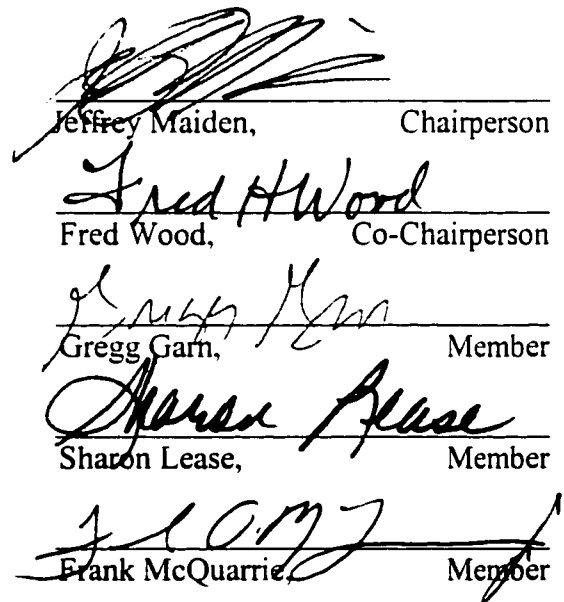 Jeffrey Maiden, Chairperson
Fred H Wood
Fred Wood, Co-Chairperson
Gregg Garn
Gregg Garn, Member
Sharon Lease
Sharon Lease, Member
Frank McQuarrie, Member